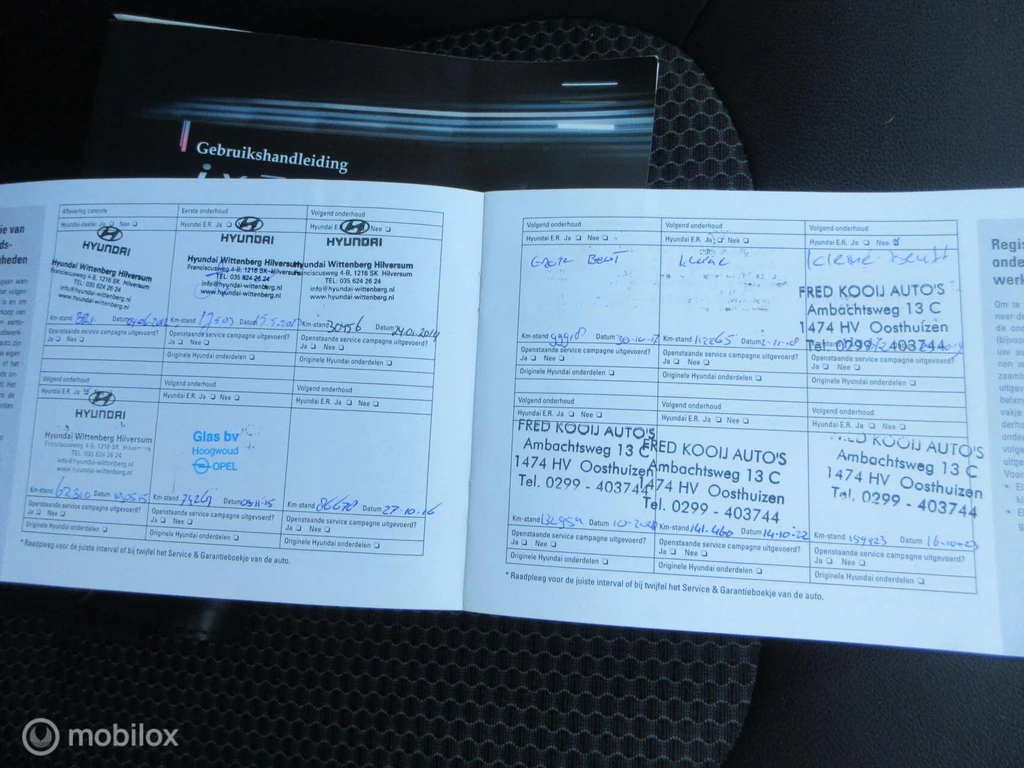 Gebruikshandleiding
Aflevering controle
Hyundai-dealer Ja Nee
HYUNDAI
Hyundai Wittenberg Hilversum
Franciscusweg 4-B, 1216 SK Hilversum
TEL: 035 624 26 24
info@hyundai-wittenberg.nl
www.hyundai-wittenberg.nl
Km-stand Datum
Openstaande service campagne uitgevoerd?
Ja Nee
Eerste onderhoud
Hyundai E.R. Ja Nee
HYUNDAI
Hyundai Wittenberg Hilversum
Franciscusweg 4-B, 1216 SK Hilversum
TEL: 035 624 26 24
info@hyundai-wittenberg.nl
www.hyundai-wittenberg.nl
Km-stand Datum
Openstaande service campagne uitgevoerd?
Ja Nee
Originele Hyundai onderdelen
Volgend onderhoud
Hyundai E.R. Ja Nee
HYUNDAI
Hyundai Wittenberg Hilversum
Franciscusweg 4-B, 1216 SK Hilversum
TEL: 035 624 26 24
info@hyundai-wittenberg.nl
www.hyundai-wittenberg.nl
Km-stand 30456 Datum 24.01.2014
Openstaande service campagne uitgevoerd?
Ja Nee
Originele Hyundai onderdelen
Volgend onderhoud
Hyundai E.R. Ja Nee
HYUNDAI
Hyundai Wittenberg Hilversum
Franciscusweg 4-B, 1216 SK Hilversum
TEL: 035 624 26 24
info@hyundai-wittenberg.nl
www.hyundai-wittenberg.nl
Km-stand 62310 Datum
Openstaande service campagne uitgevoerd?
Ja Nee
Originele Hyundai onderdelen
Volgend onderhoud
Hyundai E.R. Ja Nee
Glas bv
Hoogwoud
OPEL
Km-stand Datum
Openstaande service campagne uitgevoerd?
Ja Nee
Originele Hyundai onderdelen
Volgend onderhoud
Hyundai E.R. Ja Nee
Km-stand 86678 Datum 27-10-16
Openstaande service campagne uitgevoerd?
Ja Nee
Originele Hyundai onderdelen
* Raadpleeg voor de juiste interval of bij twijfel het Service & Garantieboekje van de auto.
Volgend onderhoud
Hyundai E.R. Ja Nee
Grote Beurt
Km-stand 99918 Datum 30-10-17
Openstaande service campagne uitgevoerd?
Ja Nee
Originele Hyundai onderdelen
Volgend onderhoud
Hyundai E.R. Ja Nee
kleine
Km-stand 112265 Datum 2-11-18
Openstaande service campagne uitgevoerd?
Ja Nee
Originele Hyundai onderdelen
Volgend onderhoud
Hyundai E.R. Ja Nee
kleine beurt
FRED KOOIJ AUTO'S
Ambachtsweg 13 C
1474 HV Oosthuizen
Tel. 0299 - 403744
Openstaande service campagne uitgevoerd?
Ja Nee
Originele Hyundai onderdelen
Volgend onderhoud
Hyundai E.R. Ja Nee
FRED KOOIJ AUTO'S
Ambachtsweg 13 C
1474 HV Oosthuizen
Tel. 0299 - 403744
Km-stand 132954 Datum
Openstaande service campagne uitgevoerd?
Ja Nee
Originele Hyundai onderdelen
Volgend onderhoud
Hyundai E.R. Ja Nee
FRED KOOIJ AUTO'S
Ambachtsweg 13 C
1474 HV Oosthuizen
Tel. 0299 - 403744
Km-stand 141.460 Datum 14-10-22
Openstaande service campagne uitgevoerd?
Ja Nee
Originele Hyundai onderdelen
Volgend onderhoud
Hyundai E.R. Ja Nee
KOOIJ AUTO'S
Ambachtsweg 13 C
1474 HV Oosthuizen
Tel. 0299 - 403744
Km-stand 159923 Datum 16-10-23
Openstaande service campagne uitgevoerd?
Ja Nee
Originele Hyundai onderdelen
* Raadpleeg voor de juiste interval of bij twijfel het Service & Garantieboekje van de auto.
mobilox